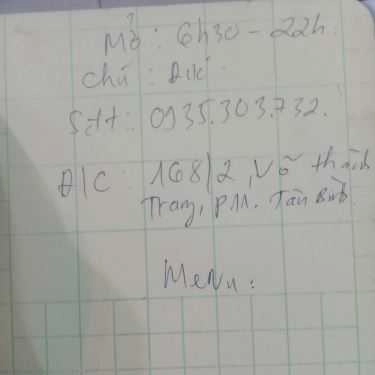 Mở: 6h30 - 22h.
Chú: Đức
Sđt: 0935.303.732.
Đ/C: 168/2, Võ Thành
Trang, P11. Tân Bình
Menu: